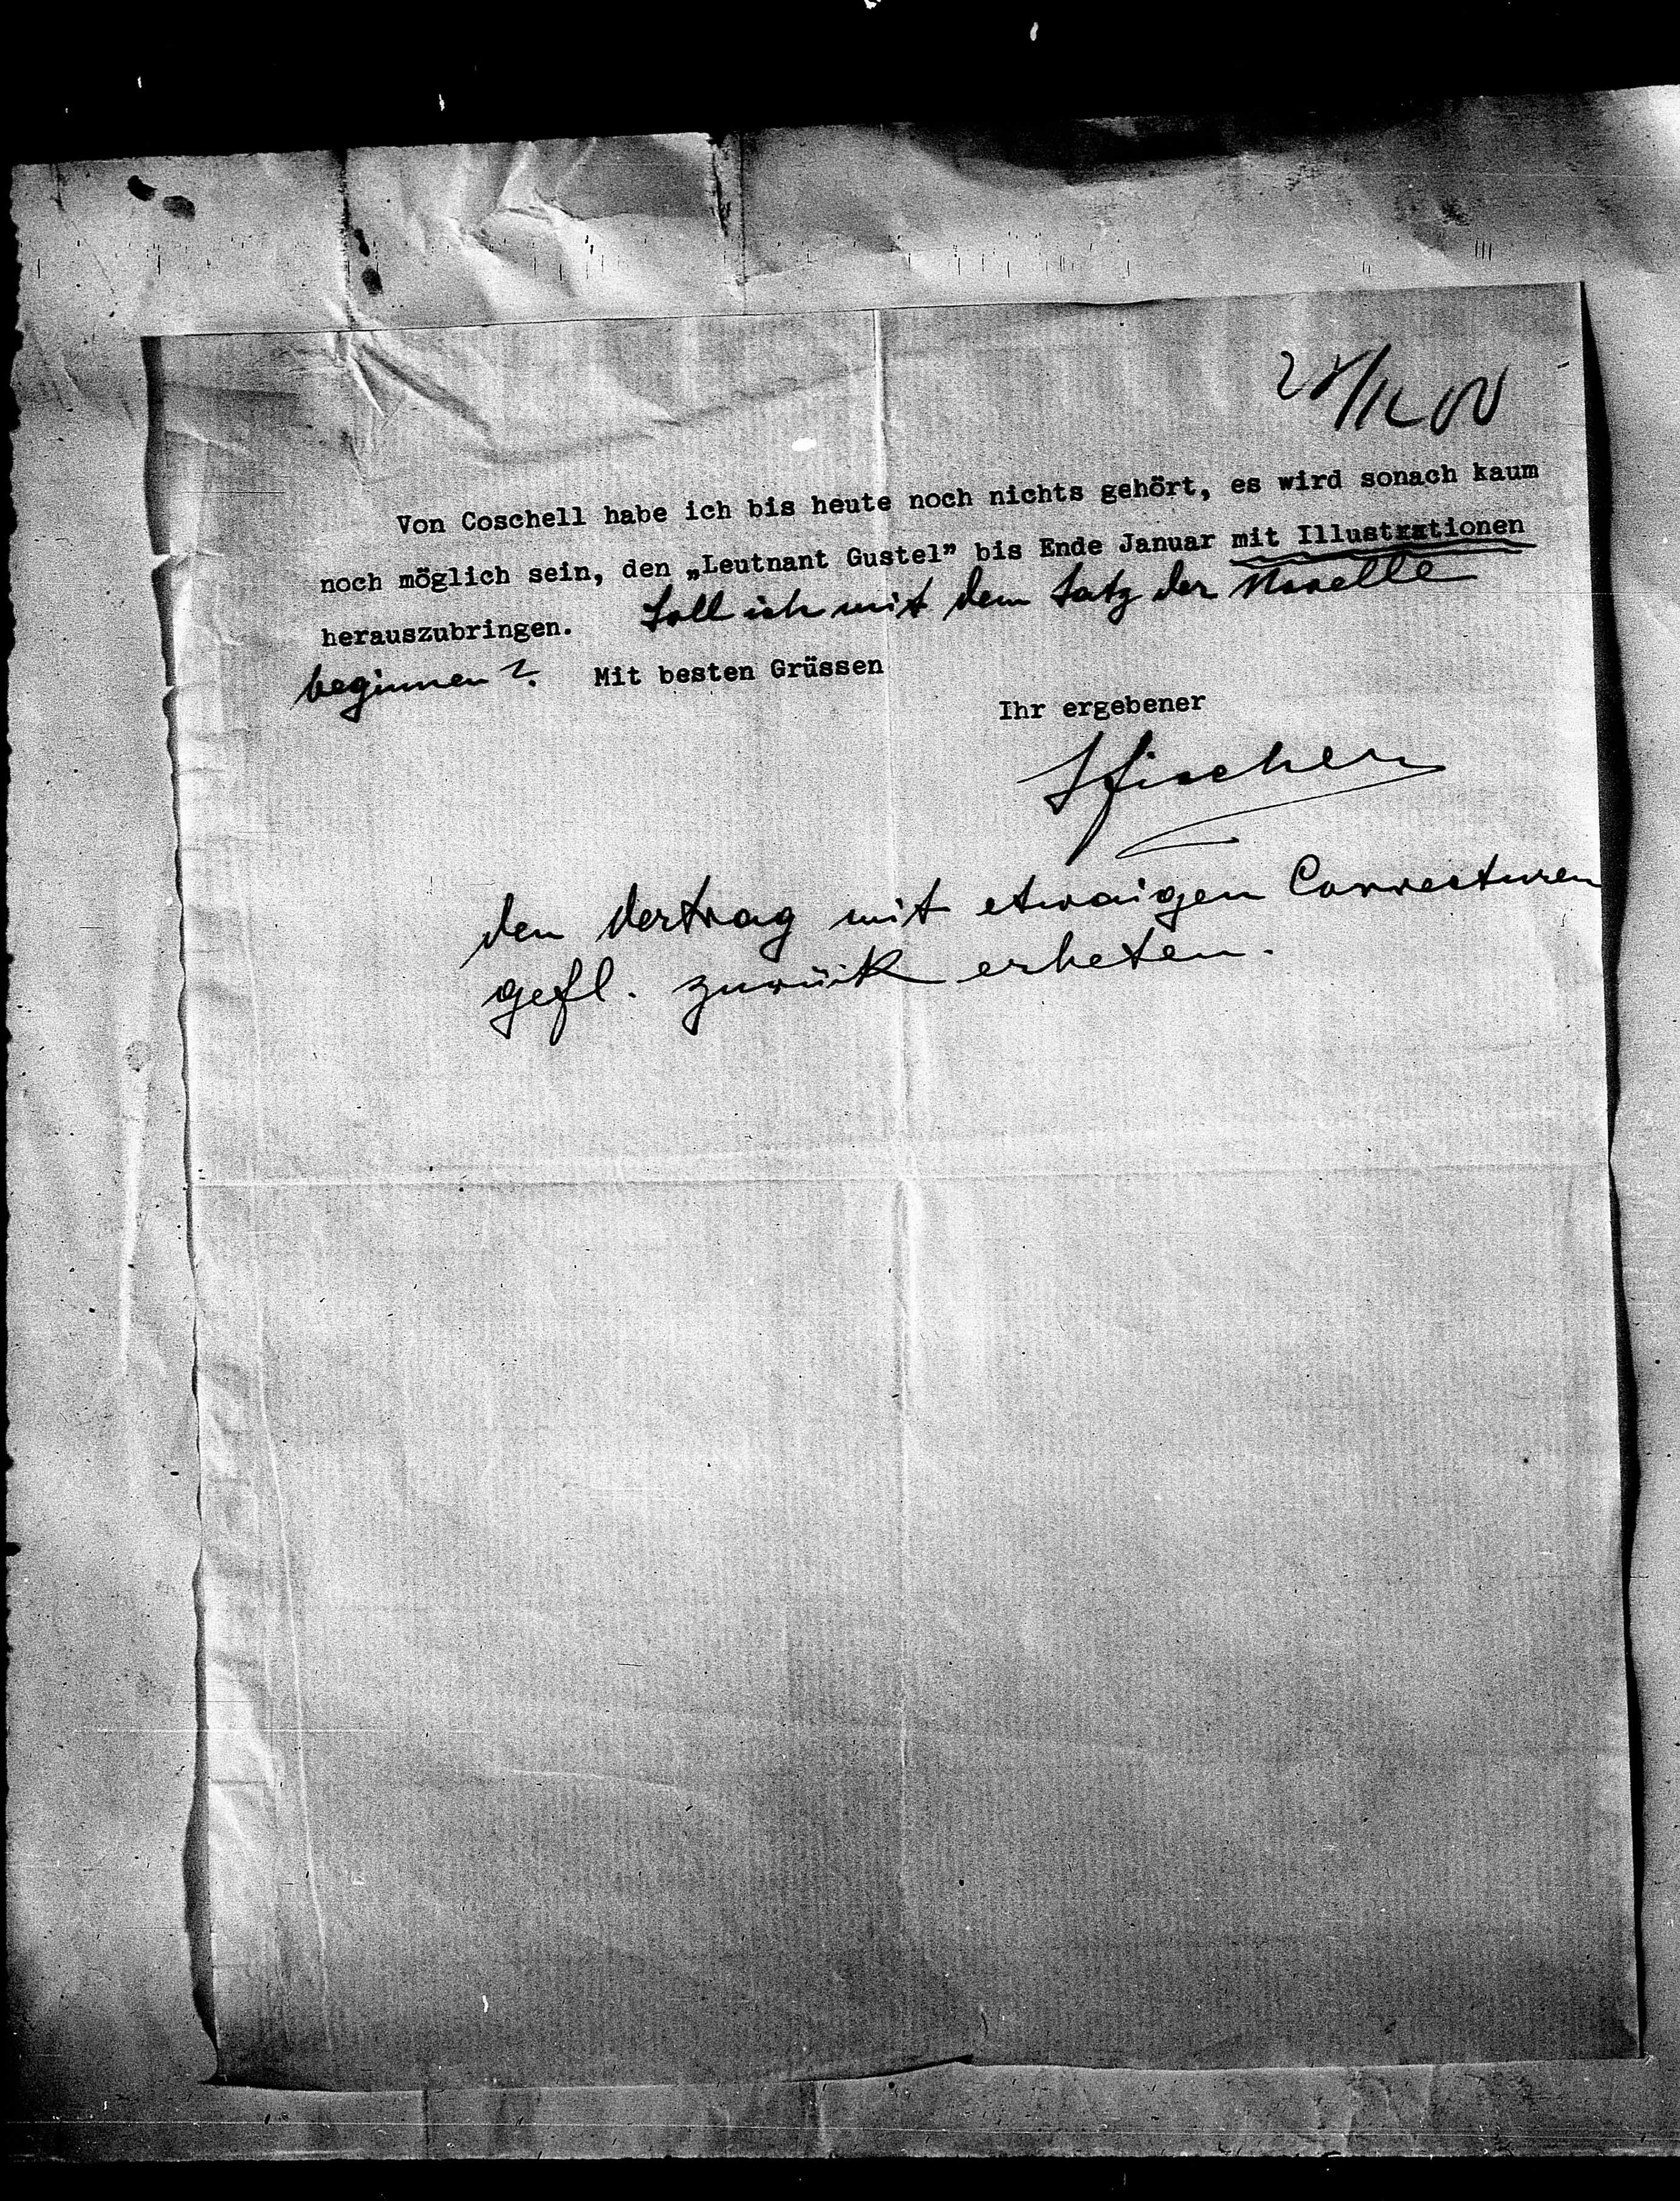 Von Coschell habe ich bis heute noch nichts gehört, es wird sonach kaum
noch möglich sein, den „Leutnant Gustel” bis Ende Januar mit Illustrationen
herauszubringen. Soll ich mit dem Satz der Novelle
beginnen? Mit besten Grüssen
Ihr ergebener
SFischer
den Vertrag mit etwaigen Correcturen
gefl. zurück erbeten.